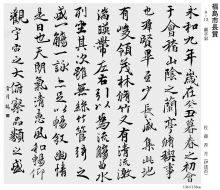 福島市長賞
永和九年歳在癸丑暮春之初會
于會稽山陰之蘭亭脩稧事
也群賢畢至少長咸集此地
有峻領茂林脩竹又有清流激
湍暎帶左右引以為流觴曲水
列坐其次雖無絲竹管弦之
盛一觴一詠亦足以暢叙幽情
是日也天朗氣清惠風和暢仰
觀宇宙之大俯察品類之盛